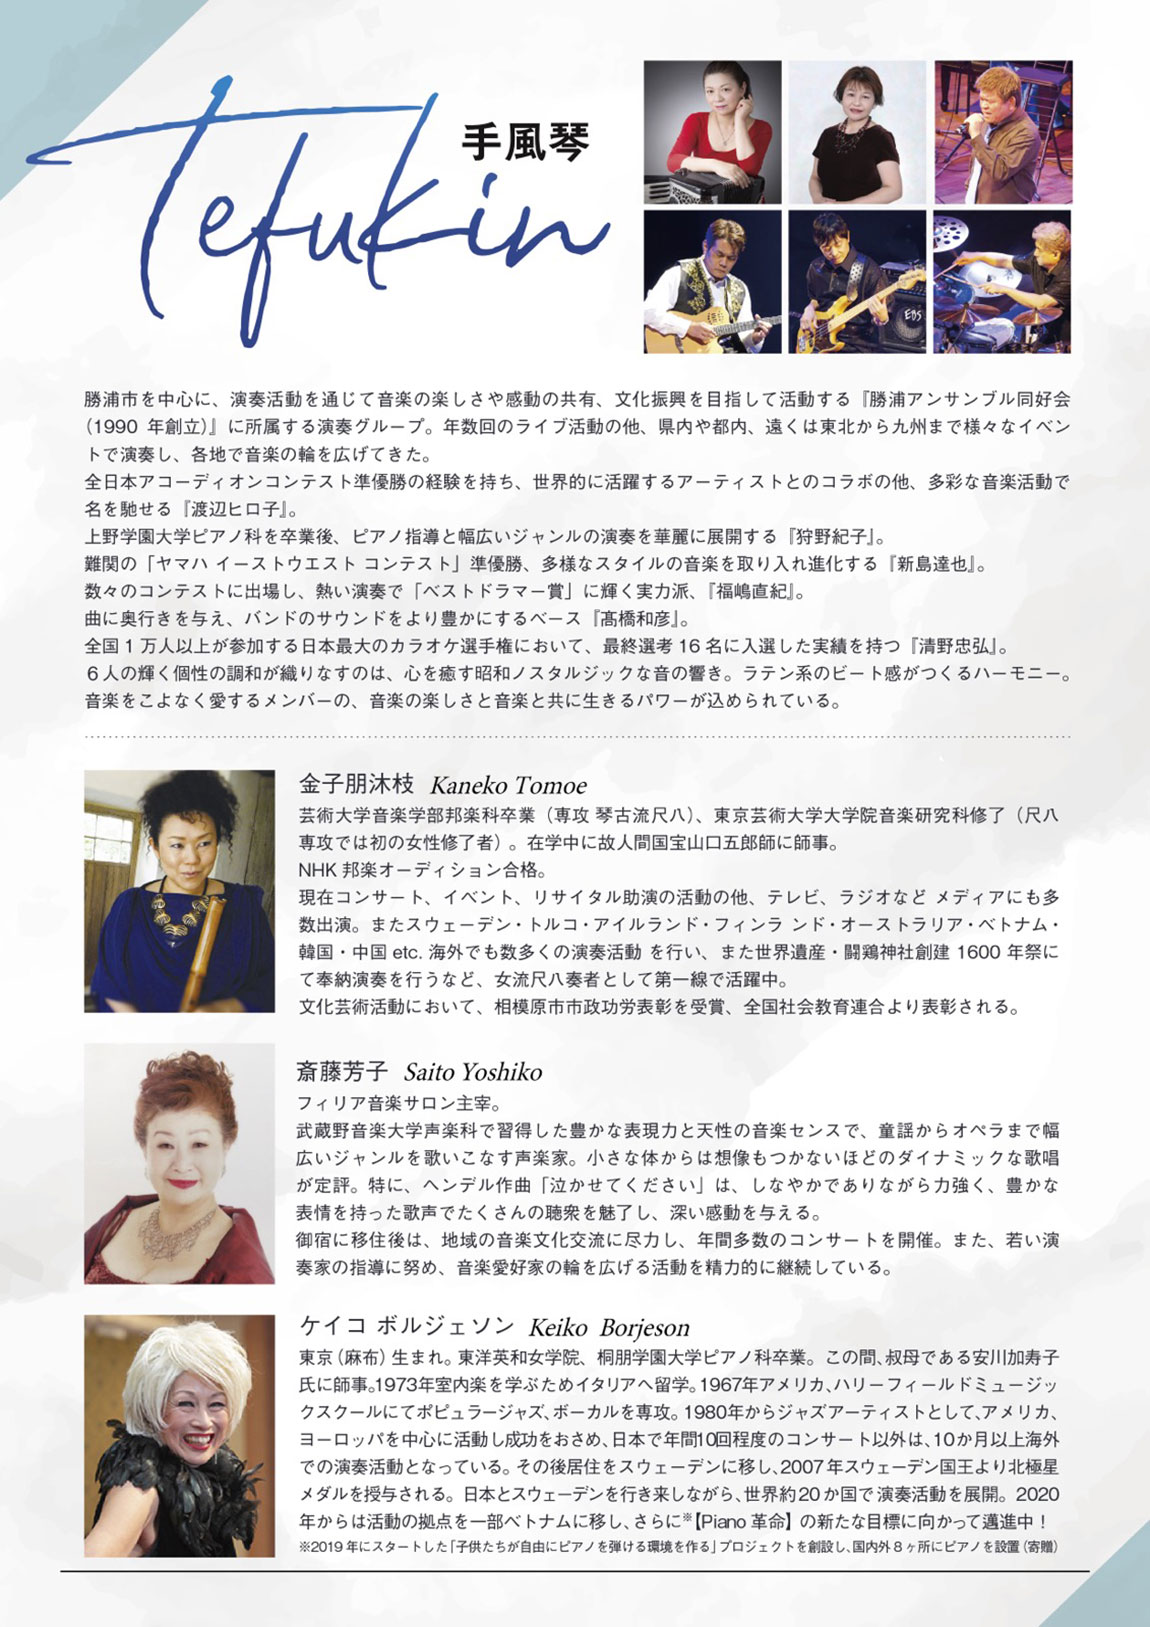 Tefukin
手風琴
EBS
勝浦市を中心に、演奏活動を通じて音楽の楽しさや感動の共有、文化振興を目指して活動する『勝浦アンサンブル同好会
(1990 年創立)』に所属する演奏グループ。年数回のライブ活動の他、県内や都内、遠くは東北から九州まで様々なイベン
トで演奏し、各地で音楽の輪を広げてきた。
全日本アコーディオンコンテスト準優勝の経験を持ち、世界的に活躍するアーティストとのコラボの他、多彩な音楽活動で
名を馳せる『渡辺ヒロ子』。
上野学園大学ピアノ科を卒業後、ピアノ指導と幅広いジャンルの演奏を華麗に展開する『狩野紀子』。
難関の「ヤマハ イーストウエスト コンテスト」準優勝、多様なスタイルの音楽を取り入れ進化する『新島達也』。
数々のコンテストに出場し、熱い演奏で「ベストドラマー賞」に輝く実力派、『福嶋直紀』。
曲に奥行きを与え、バンドのサウンドをより豊かにするベース『髙橋和彦』。
全国 1 万人以上が参加する日本最大のカラオケ選手権において、最終選考 16 名に入選した実績を持つ『清野忠弘』。
６人の輝く個性の調和が織りなすのは、心を癒す昭和ノスタルジックな音の響き。ラテン系のビート感がつくるハーモニー。
音楽をこよなく愛するメンバーの、音楽の楽しさと音楽と共に生きるパワーが込められている。
金子朋沐枝 Kaneko Tomoe
芸術大学音楽学部邦楽科卒業（専攻 琴古流尺八)、東京芸術大学大学院音楽研究科修了（尺八
専攻では初の女性修了者）。在学中に故人間国宝山口五郎師に師事。
NHK 邦楽オーディション合格。
現在コンサート、イベント、リサイタル助演の活動の他、テレビ、ラジオなど メディアにも多
数出演。またスウェーデン・トルコ・アイルランド・フィンラ ンド・オーストラリア・ベトナム・
韓国・中国 etc. 海外でも数多くの演奏活動 を行い、また世界遺産・闘鶏神社創建 1600 年祭に
て奉納演奏を行うなど、女流尺八奏者として第一線で活躍中。
文化芸術活動において、相模原市市政功労表彰を受賞、全国社会教育連合より表彰される。
斎藤芳子 Saito Yoshiko
フィリア音楽サロン主宰。
武蔵野音楽大学声楽科で習得した豊かな表現力と天性の音楽センスで、童謡からオペラまで幅
広いジャンルを歌いこなす声楽家。小さな体からは想像もつかないほどのダイナミックな歌唱
が定評。特に、ヘンデル作曲「泣かせてください」は、しなやかでありながら力強く、豊かな
表情を持った歌声でたくさんの聴衆を魅了し、深い感動を与える。
御宿に移住後は、地域の音楽文化交流に尽力し、年間多数のコンサートを開催。また、若い演
奏家の指導に努め、音楽愛好家の輪を広げる活動を精力的に継続している。
ケイコ ボルジェソン Keiko Borjeson
東京（麻布）生まれ。東洋英和女学院、桐朋学園大学ピアノ科卒業。この間、叔母である安川加寿子
氏に師事。1973年室内楽を学ぶためイタリアへ留学。1967年アメリカ、ハリーフィールドミュージッ
クスクールにてポピュラージャズ、ボーカルを専攻。1980年からジャズアーティストとして、アメリカ、
ヨーロッパを中心に活動し成功をおさめ、日本で年間10回程度のコンサート以外は、10か月以上海外
での演奏活動となっている。その後居住をスウェーデンに移し、2007年スウェーデン国王より北極星
メダルを授与される。日本とスウェーデンを行き来しながら、世界約20か国で演奏活動を展開。2020
年からは活動の拠点を一部ベトナムに移し、さらに※【Piano 革命】の新たな目標に向かって邁進中！
※2019年にスタートした「子供たちが自由にピアノを弾ける環境を作る」プロジェクトを創設し、国内外８ヶ所にピアノを設置（寄贈）